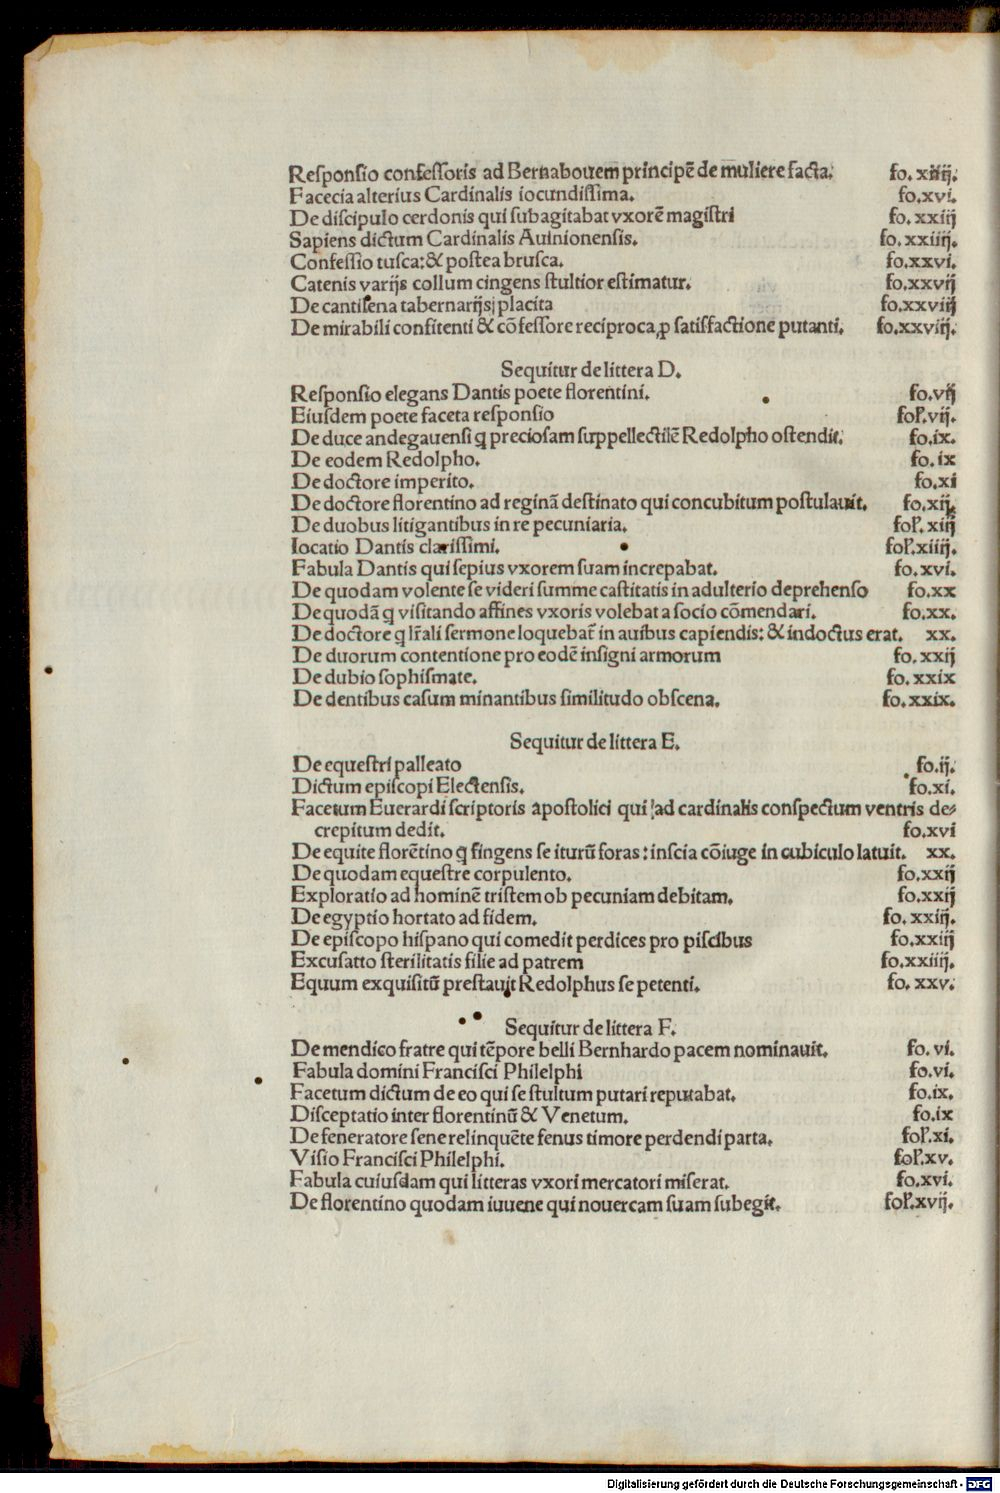 Responſio confeſſoris ad Bernabouem principē de muliere facta. fo. xiiij.
Facecia alterius Cardinalis iocundiſſima. fo.xvi.
De diſcipulo cerdonis qui ſubagitabat vxorē magiſtri fo. xxiij
Sapiens dictum Cardinalis Auinionenſis. fo. xxiiij.
Confeſſio tuſca: & poſtea bruſca. fo.xxvi.
Catenis varijs collum cingens ſtultior eſtimatur. fo.xxvij
De cantilena tabernarijs placita fo.xxviij
De mirabili confitenti & cōfeſſore reciproca ꝓ ſatiſfactione putanti. fo.xxviij.
Sequitur de littera D.
Reſponſio elegans Dantis poete florentini. fo.vij
Eiuſdem poete faceta reſponſio fol'.vij.
De duce andegauenſi q̄ precioſam ſuppellectilē Redolpho oſtendit. fo.ix.
De eodem Redolpho. fo.ix
De doctore imperito. fo.xi
De doctore florentino ad reginā deſtinato qui concubitum poſtulauit. fo.xij.
De duobus litigantibus in re pecuniaria. fol'. xiij
Iocatio Dantis clariſſimi. fol'.xiiij.
Fabula Dantis qui ſepius vxorem ſuam increpabat. fo.xvi.
De quodam volente ſe videri ſumme caſtitatis in adulterio deprehenſo fo.xx
De quodā q̄ viſitando affines vxoris volebat a ſocio cōmendari. fo.xx.
De doctore q̄ lr̄ali ſermone loquebat̄ in auibus capiendis: & indoctus erat. xx.
De duorum contentione pro eodē inſigni armorum fo. xxij
De dubio ſophiſmate. fo. xxix
De dentibus caſum minantibus ſimilitudo obſcena. fo.xxix.
Sequitur de littera E.
De equeſtri palleato fo.ij.
Dictum epiſcopi Electenſis. fo.xi.
Facetum Euerardi ſcriptoris apoſtolici qui ad cardinalis conſpectum ventris de⸗
crepitum dedit. fo.xvi
De equite florētino q̄ fingens ſe iturū foras: inſcia cōiuge in cubiculo latuit. xx.
De quodam equeſtre corpulento. fo.xxij
Exploratio ad hominē triſtem ob pecuniam debitam. fo.xxij
De egyptio hortato ad fidem. fo. xxiij.
De epiſcopo hiſpano qui comedit perdices pro piſcibus fo.xxiij
Excuſatto ſterilitatis filie ad patrem fo.xxiiij.
Equum exquiſitū preſtauit Redolphus ſe petenti. fo. xxv.
Sequitur de littera F.
De mendico fratre qui tēpore belli Bernhardo pacem nominauit. fo. vi.
Fabula domini Franciſci Philelphi fo.vi.
Facetum dictum de eo qui ſe ſtultum putari reputabat. fo.ix.
Diſceptatio inter florentinū & Venetum. fo.ix
De feneratore ſene relinquēte fenus timore perdendi parta. fol'.xi.
Viſio Franciſci Philelphi. fol'.xv.
Fabula cuiuſdam qui litteras vxori mercatori miſerat. fo.xvi.
De florentino quodam iuuene qui nouercam ſuam ſubegit. fol'.xvij.
Digitalisierung gefördert durch die Deutsche Forschungsgemeinschaft - DFG